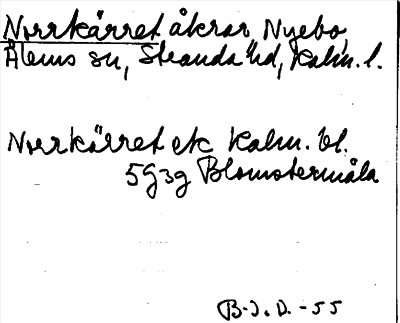 Norrkärret åkrar, Nyebo,
Ålems sn, Stranda hd, Kalm. l.
Norrkärret ek Kalm. bl.
5G3g Blomstermåla
B.J.D. -55